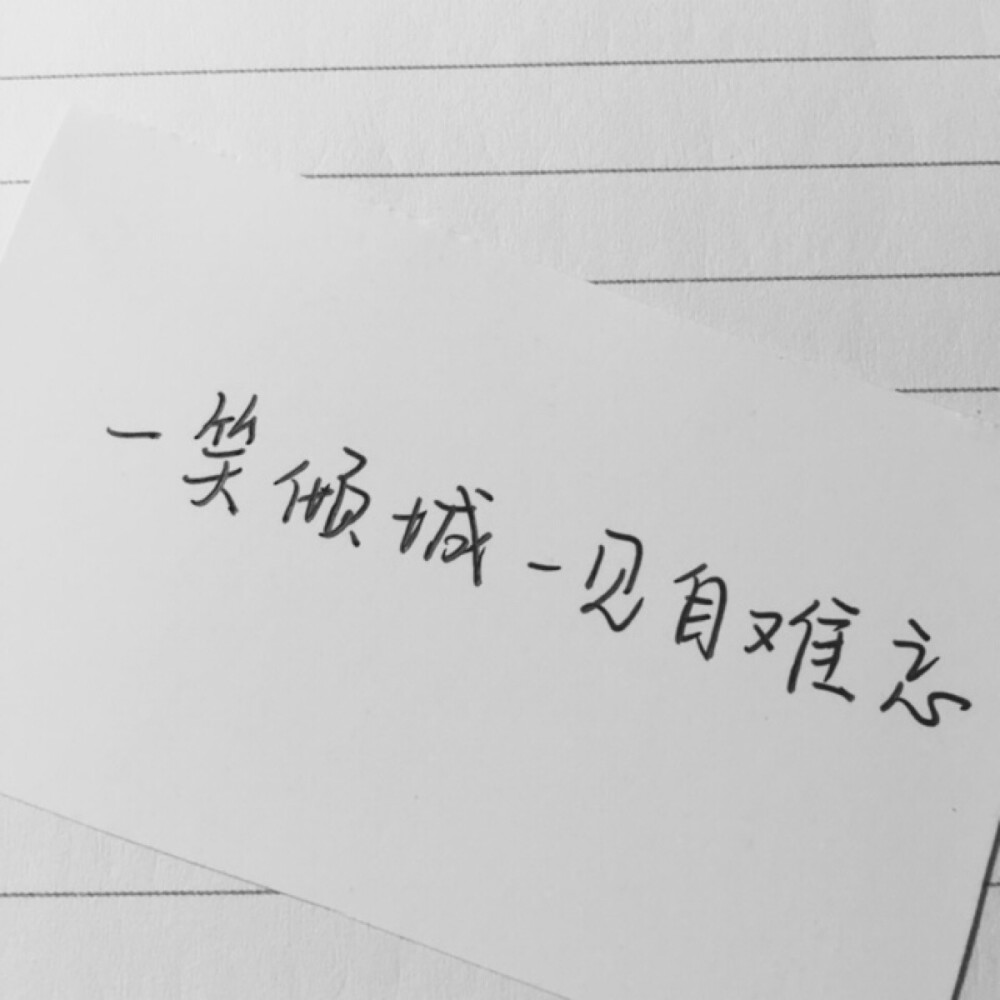 一笑倾城一见自难忘